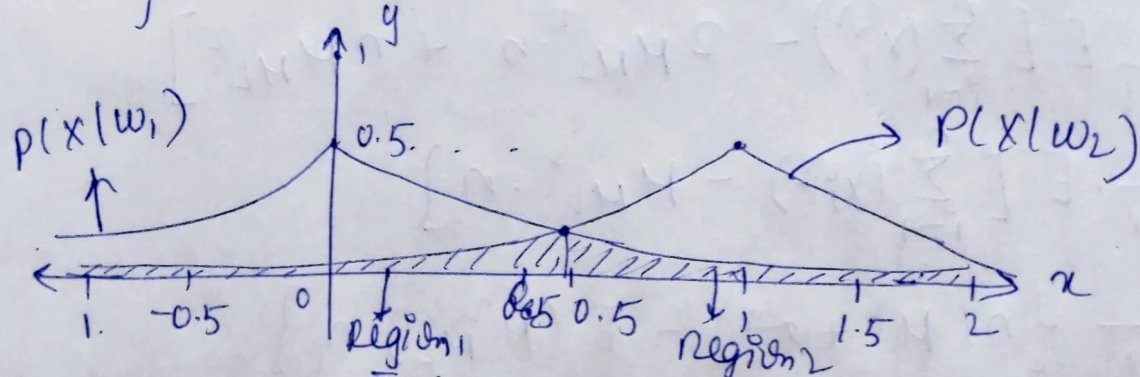 y
P(X/W1)
0.5. . .
P(X/W2)
1. -0.5 0 0.5 1 1.5 2 x
Region1 Region2